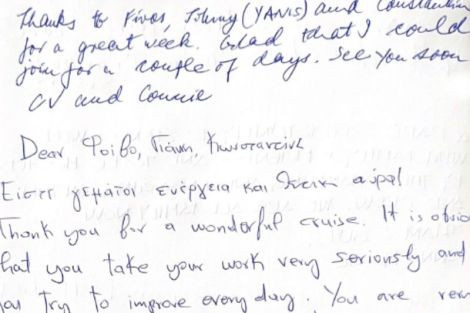 Thanks to Fivos, Johnny (YANIS) and Constantin
for a great week. Glad that I could
join for a couple of days. See you soon
CV and Connie
Dear Φοίβο, Γιάννη, Κωνσταντίνε
Είστε γεμάτοι ενέργεια και θετική αύρα!
Thank you for a wonderful cruise. It is obvio
hat you take your work very seriously and
you try to improve every day. You are very